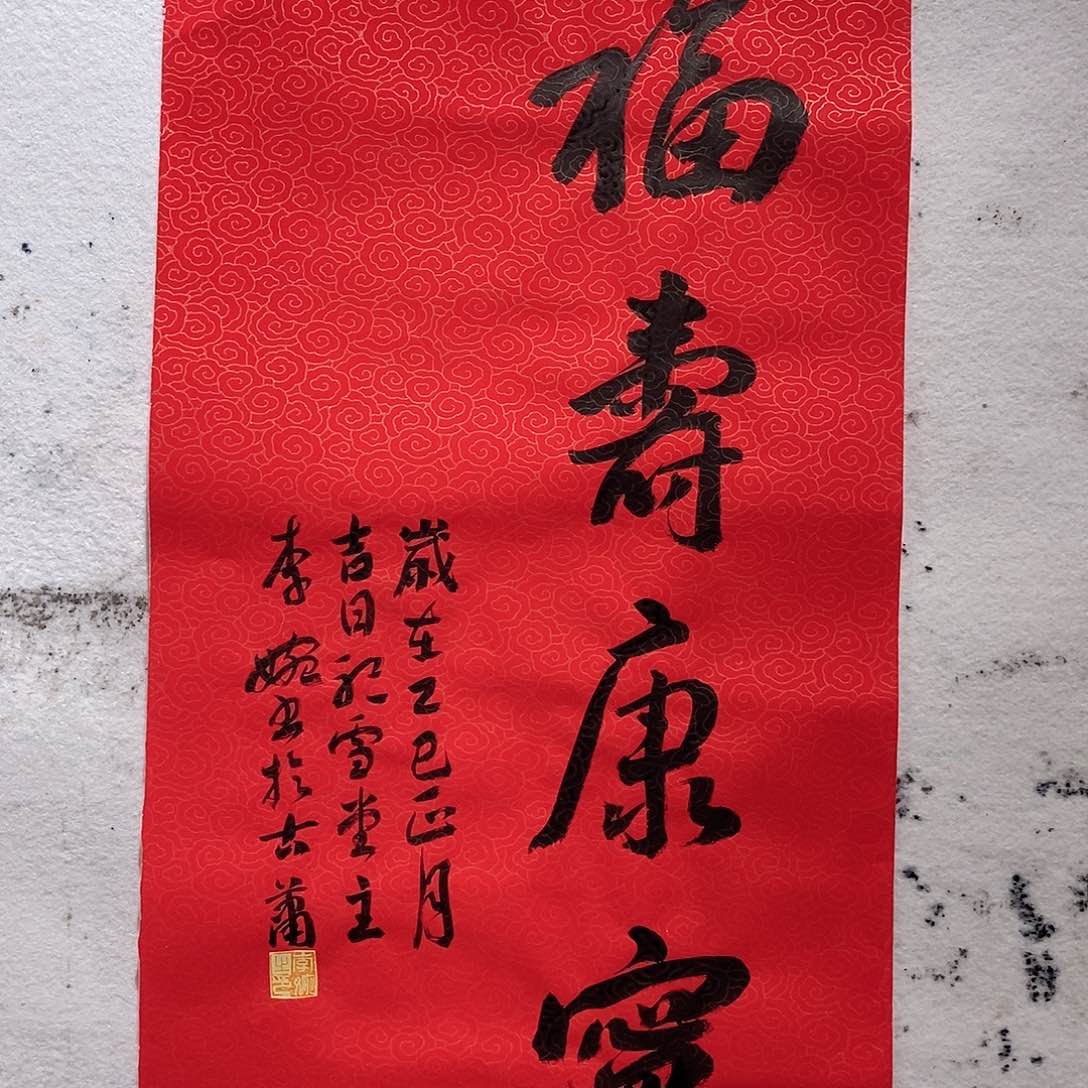 福壽康寧
歲在乙巳正月
吉日
雪堂主
李婉书於古蕭